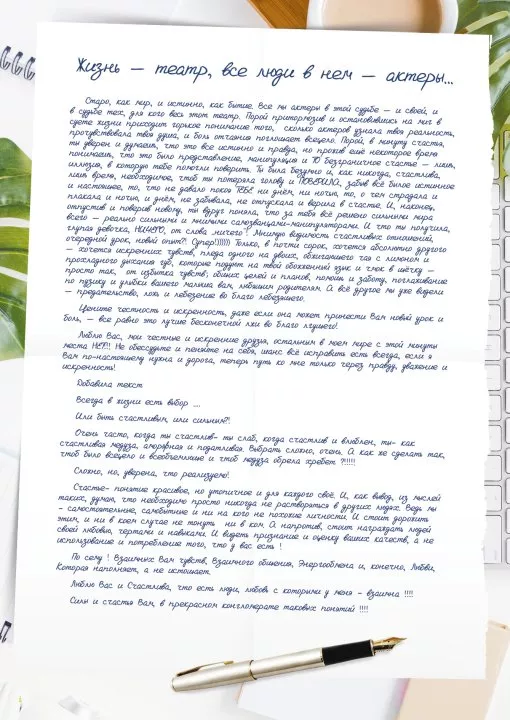 Жизнь — театр, все люди в нем — актеры...
Старо, как мир, и истинно, как бытие. Все мы актеры в этой судьбе — и своей, и
в судьбе тех, для кого весь этот театр. Порой притормозив и остановившись на миг в
суете жизни приходит горькое понимание того, сколько актеров узнала твоя реальность,
прочувствовала твоя душа, и боль отчаяния поглощает всецело. Порой, в минуту счастья,
ты уверен и думаешь, что это все истинно и правда, но прожив ещё некоторое время
понимаешь, что это было представление, манипуляция и ТО безграничное счастье — лишь,
иллюзия, в которую тебе помогли поверить. Ты была безумно и, как никогда, счастлива,
лишь время, необходимое, чтоб ты потеряла голову и ПОВЕРИЛА, забыв всё былое истинное
и настоящее, то, что не давало покоя ТЕБЕ ни днём, ни ночью, то, о чем страдала и
плакала и ночью, и днём, не забывала, не отпускала и верила в счастье. И, наконец,
отпустив и поверив новому, ты вдруг поняла, что за тебя всё решено сильными мира
всего — реально сильными и мнимыми самозванцами-манипуляторами. И что ты получила,
глупая девочка, НИЧЕГО, от слова „ничего"! Мнимую видимость счастливых отношений,
очередной урок, новый опыт?! Супер!)))))) Только, в почти сорок, хочется абсолютно другого
— хочется искренних чувств, пледа одного на двоих, обжигающего чая с лимоном и
прохладного дыхания губ, которые подуют на твой обожженный язык и чмок в щечку —
просто так, от избытка чувств; общих целей и планов, помощи и заботы, поглаживание
по пузику и улыбки вашего малыша вам, любимым родителям. А всё другое мы уже видели
— предательство, ложь и лебезение во благо лебезящего.
Цените честность и искренность, даже если она может принести Вам новый урок и
боль, — все равно это лучше бесконечной лжи во благо лгущего!
Люблю Вас, мои честные и искренние друзья, остальным в моем мире с этой минуты
места НЕТ!!! Не обессудьте и пеняйте на себя, шанс всё исправить есть всегда, если я
Вам по-настоящему нужна и дорога, теперь путь ко мне только через правду, уважение и
искренность!
Добавила текст
Всегда в жизни есть выбор ...
Или быть счастливым, или сильным?!
Очень часто, когда ты счастлив- ты слаб, когда счастлив и влюблен, ты- как
счастливая медуза, аморфная и податливая. Выбрать сложно, очень. А как же сделать так,
чтоб было всецело и всеобъемлюще и чтоб медуза обрела хребет ?!!!!!
Сложно, но, уверена, что реализуемо!
Счастье- понятие красивое, но утопичное и для каждого своё. И, как вывод, из мыслей
таких, думаю, что необходимо просто никогда не растворяться в других людях. Ведь мы
- самостоятельные, самобытные и ни на кого не похожие личности. И стоит дорожить
этим, и ни в коем случае не тонуть ни в ком. А напротив, стоит награждать людей
своей любовью, чертами и навыками. И видеть признание и оценку ваших качеств, а не
использование и потребление того, что у вас есть !
По сему ! Взаимных Вам чувств, Взаимного общения, Энергообмена и, конечно, Любви.
Которая наполняет, а не истощает.
Люблю Вас и Счастлива, что есть люди, любовь с которыми у меня - взаимна !!!!
Силы и счастья Вам, в прекрасном конгломерате таковых понятий !!!!